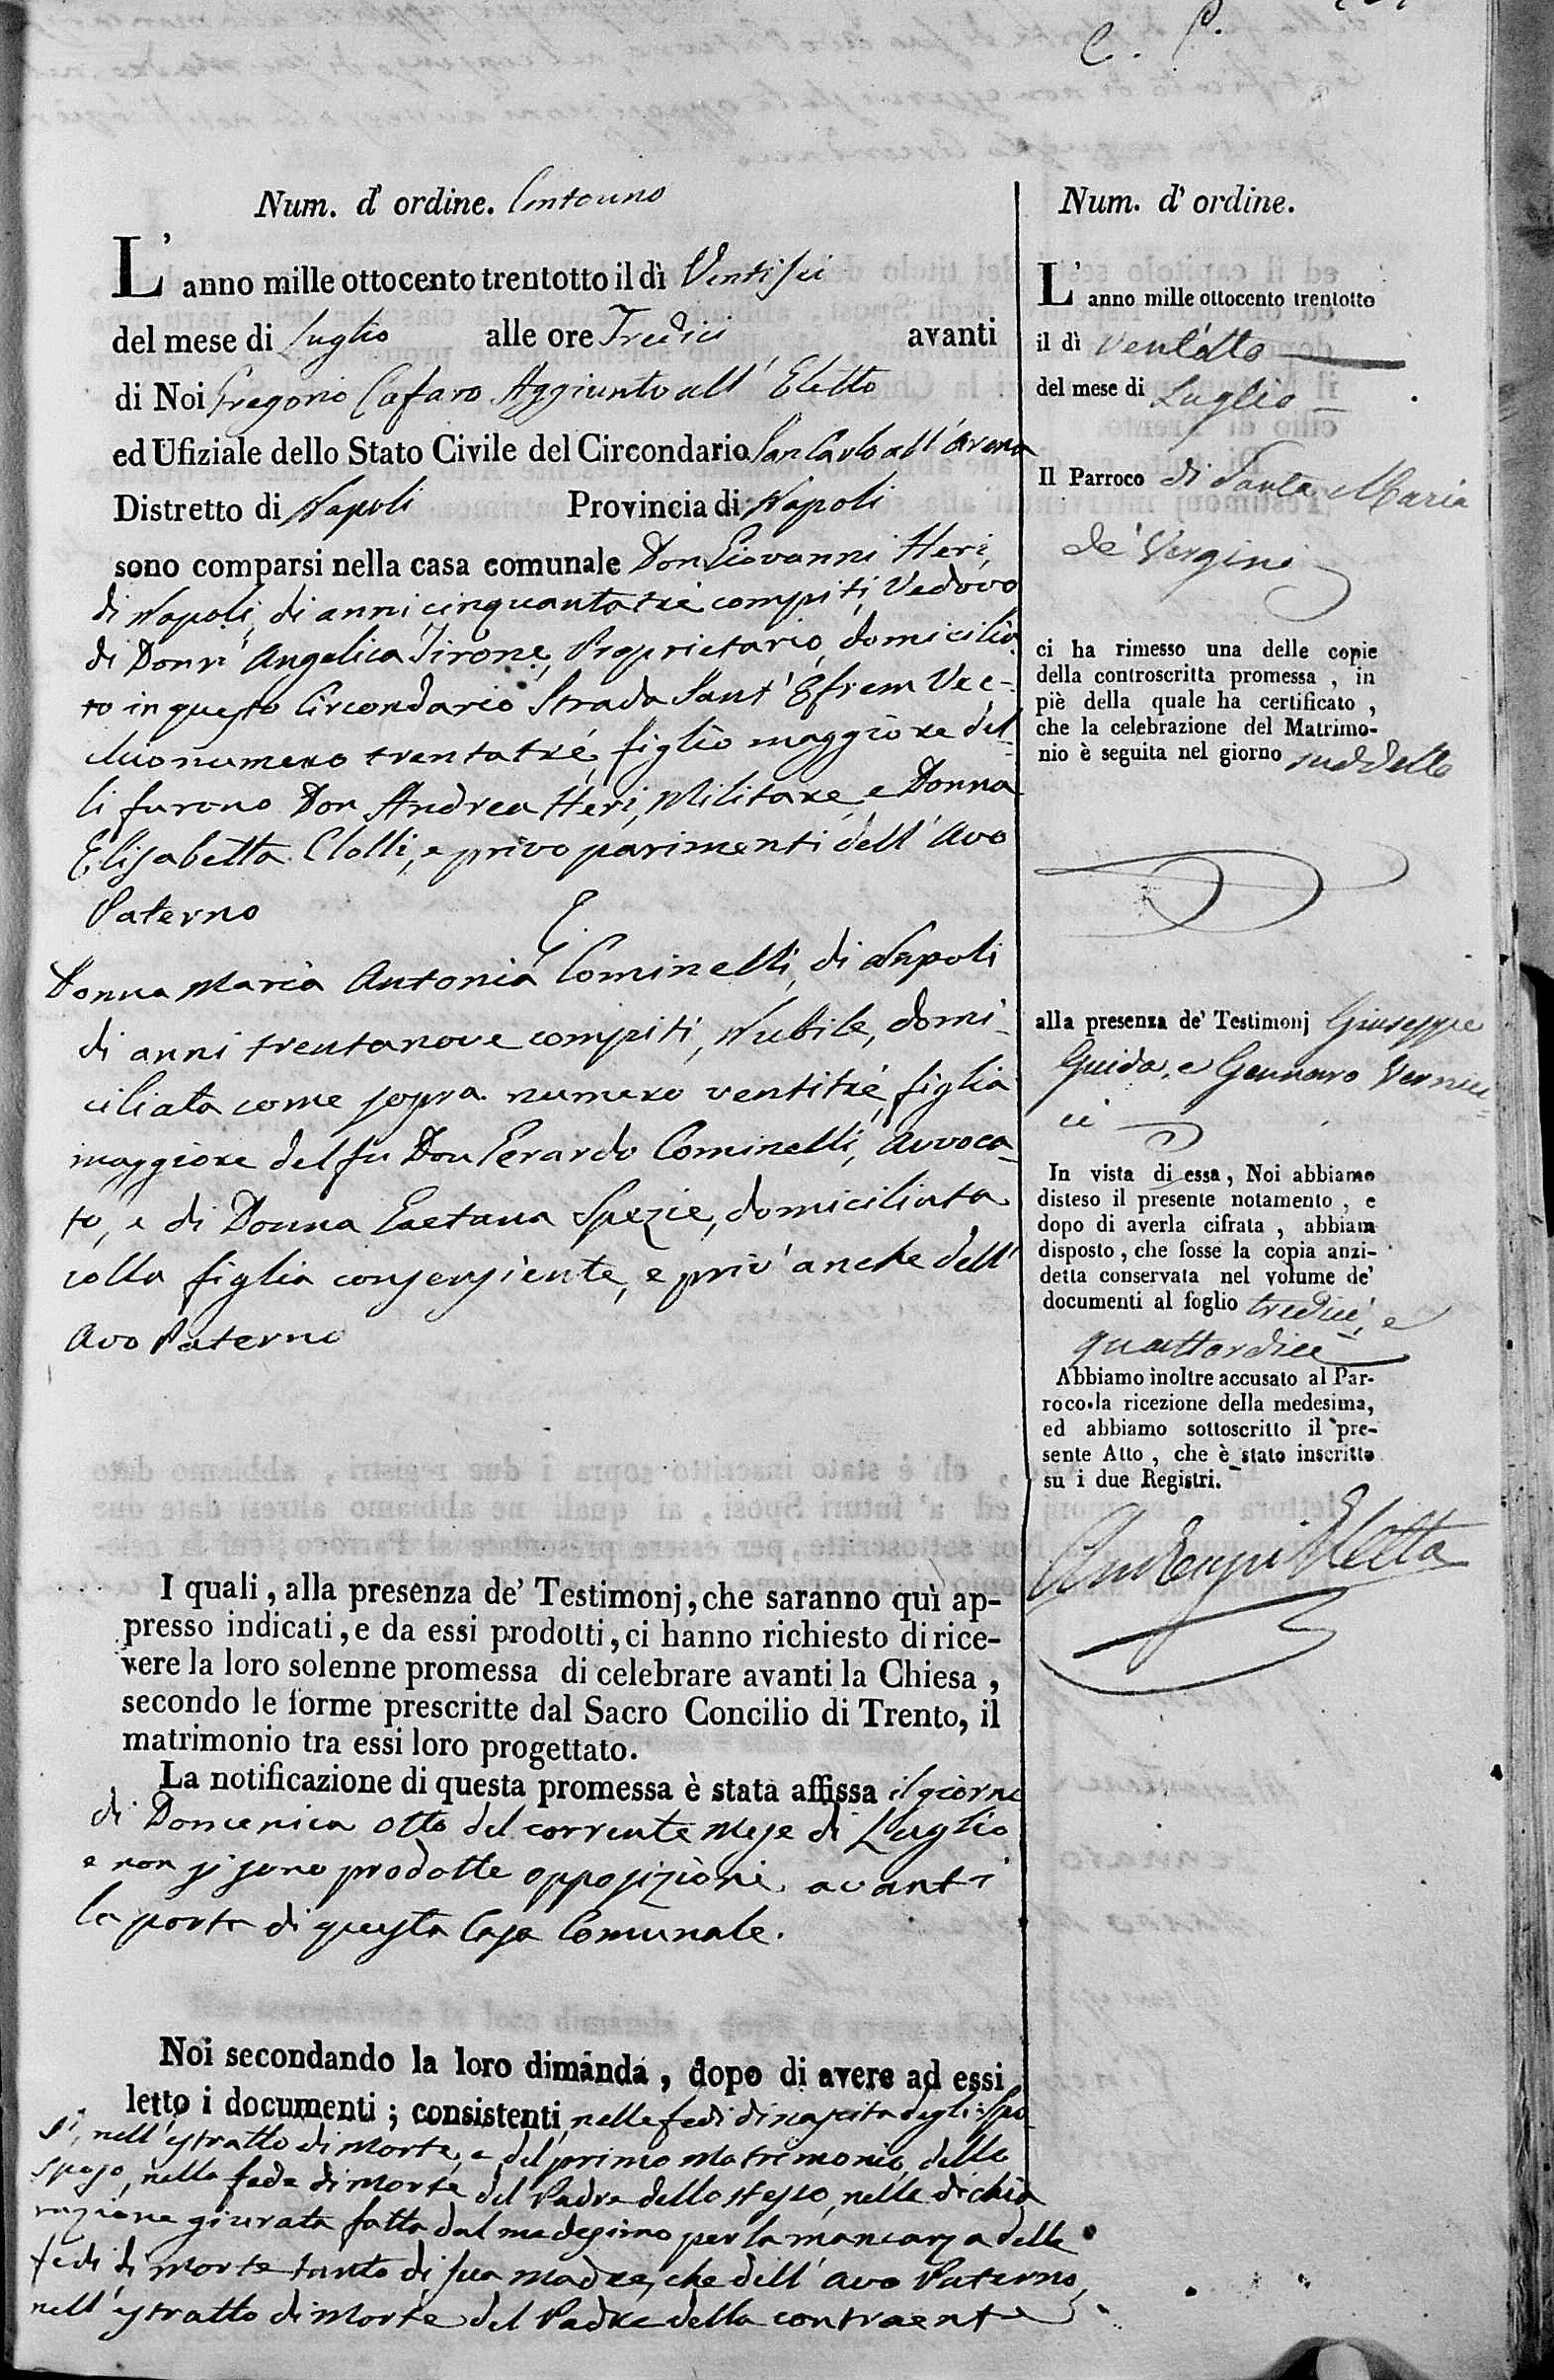 C. P.
Num. d' ordine. Centouno
L' anno mille ottocento trentotto il dì Ventisei
del mese di Luglio alle ore Tredici avanti
di Noi Gregorio Cafaro Aggiunto all' Eletto
ed Ufiziale dello Stato Civile del Circondario San Carlo all' Arena
Distretto di Napoli Provincia di Napoli
sono comparsi nella casa comunale Don Giovanni Heri,
di Napoli, di anni cinquantatrè compiti, Vedovo
di Donn' Angelica Tirone, Proprietario, domicilia-
to in questo Circondario Strada Sant' Efrem Vec-
chio numero trentatrè, figlio maggiore del-
li furono Don Andrea Heri, Militare, e Donna
Elisabetta Clolli, e privo parimenti dell' Avo
Paterno E.
Donna Maria Antonia Cominelli, di Napoli
di anni trentanove compiti, Nubile, domi-
ciliata come sopra numero ventitrè, figlia
maggiore del fu Don Gerardo Cominelli, Avvoca-
to, e di Donna Gaetana Spezie, domiciliata
colla figlia consenziente, e priv' anche dell'
Avo Paterno
I quali, alla presenza de' Testimonj, che saranno quì ap-
presso indicati, e da essi prodotti, ci hanno richiesto di rice-
vere la loro solenne promessa di celebrare avanti la Chiesa,
secondo le forme prescritte dal Sacro Concilio di Trento, il
matrimonio tra essi loro progettato.
La notificazione di questa promessa è stata affissa il giorno
di Domenica otto del corrente Mese di Luglio
e non si sono prodotte opposizioni avanti
la porta di questa Casa Comunale.
Noi secondando la loro dimanda, dopo di avere ad essi
letto i documenti; consistenti nelle fedi di nascita degli Spo-
si, nell' estratto di morte, e del primo Matrimonio dello
sposo, nella fede di morte del Padre dello stesso, nelle dichia
razione giurata fatta dal medesimo per la mancanza delle
fedi di morte tanto di sua madre, che dell' Avo Paterno,
nell' estratto di morte del Padre della contraente
Num. d' ordine.
L' anno mille ottocento trentotto
il dì Ventotto
del mese di Luglio
Il Parroco di Santa Maria
de' Vergini
ci ha rimesso una delle copie
della controscritta promessa, in
piè della quale ha certificato,
che la celebrazione del Matrimo-
nio è seguita nel giorno suddetto
alla presenza de' Testimonj Giuseppe
Guida, e Gennaro Vernuc-
ci
In vista di essa, Noi abbiamo
disteso il presente notamento, e
dopo di averla cifrata, abbiam
disposto, che fosse la copia anzi-
detta conservata nel volume de'
documenti al foglio tredici, e
quattordici
Abbiamo inoltre accusato al Par-
roco la ricezione della medesima,
ed abbiamo sottoscritto il pre-
sente Atto, che è stato inscritto
su i due Registri.